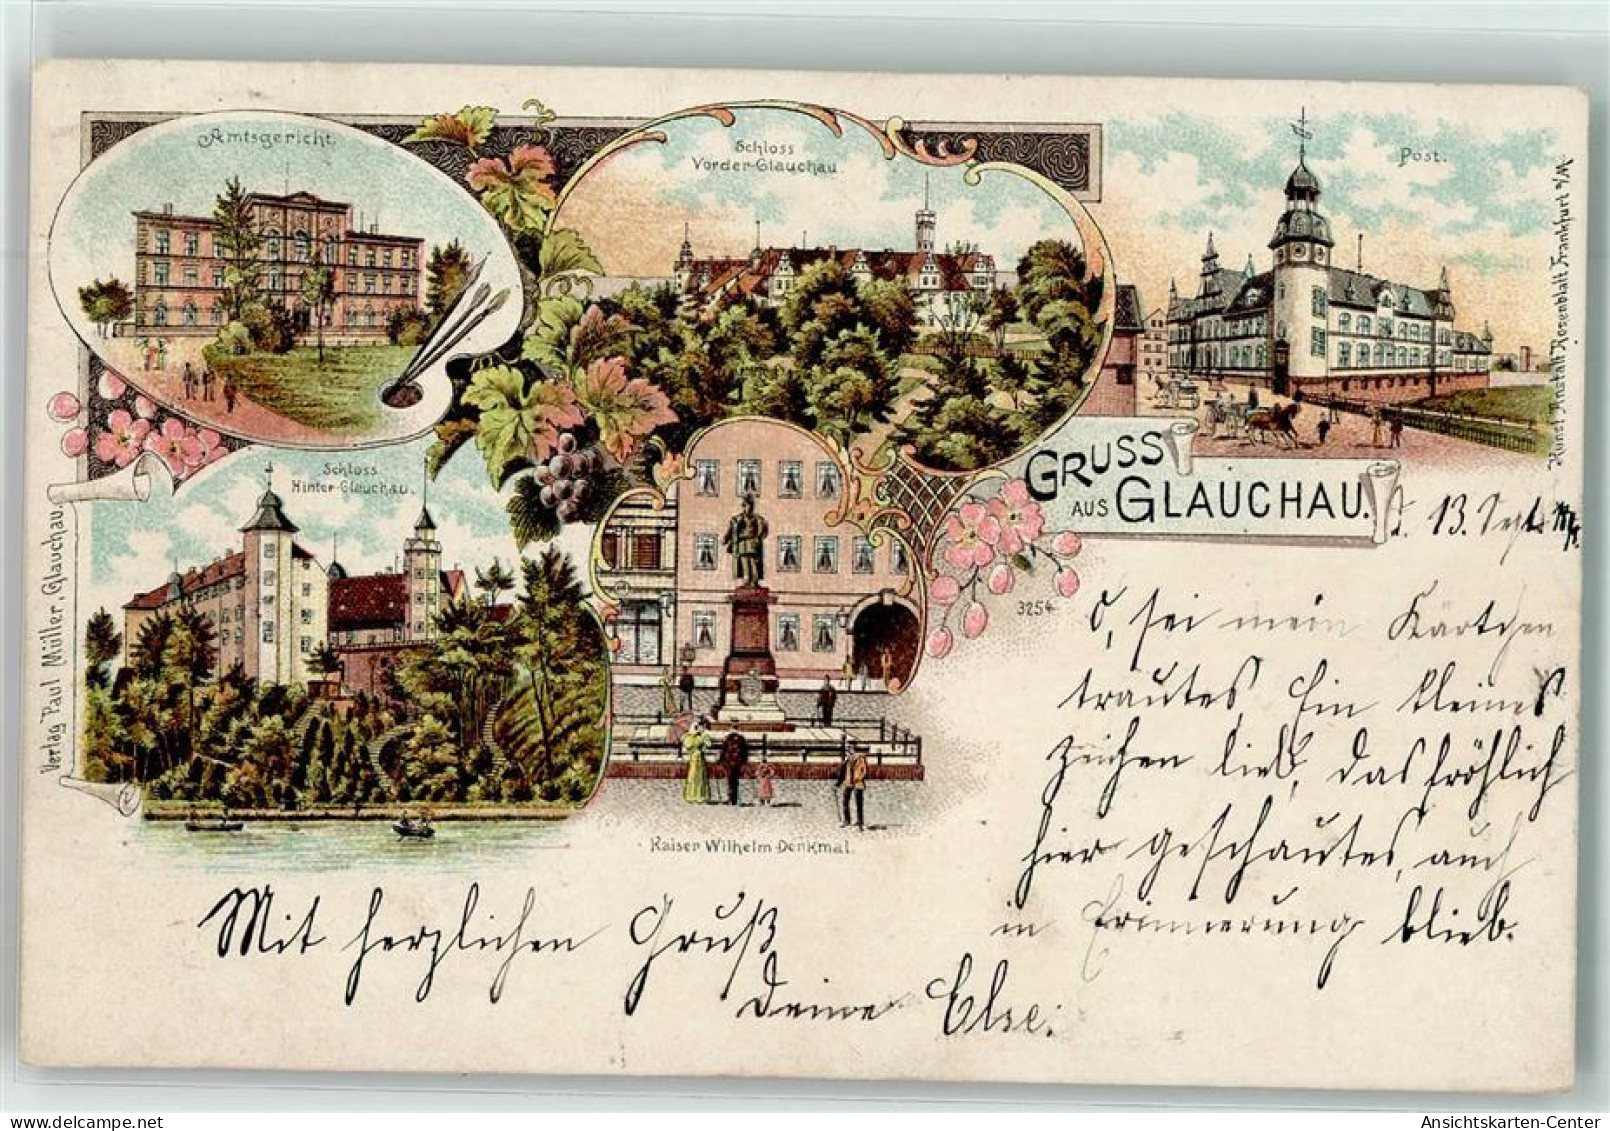 Amtsgericht.
Schloss
Vorder-Glauchau.
Post.
Schloss
Hinter-Glauchau.
GRUSS
AUS GLAUCHAU.
13. Sept.
3254
O, sei mein Kärtchen
trautes Ein kleines
Zeichen lieb, das fröhlich
hier geschautes, auch
in Erinnerung blieb.
Kaiser Wilhelm-Denkmal.
Mit herzlichen Gruß
Deine Else.
Verlag Paul Müller, Glauchau.
Kunst Anstalt Rosenblatt Frankfurt a/M.
Ansichtskarten-Center